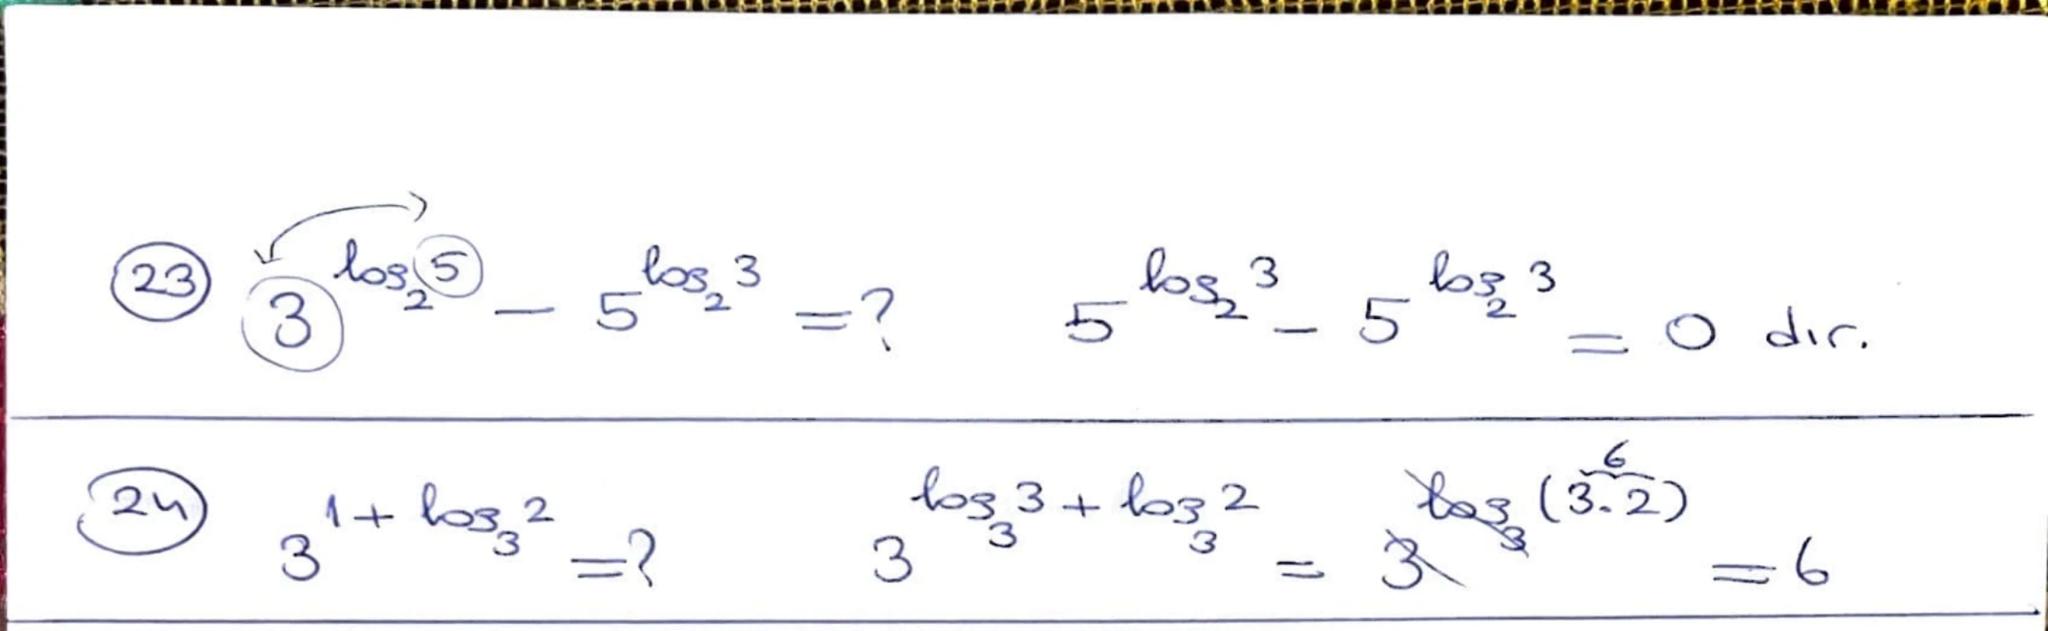 23 3^log₂5 − 5^log₂3 = ? 5^log₂3 − 5^log₂3 = 0 dır.
24 3^1+log₃2 = ? 3^log₃3+log₃2 = 3^log₃(3.2) 6 = 6